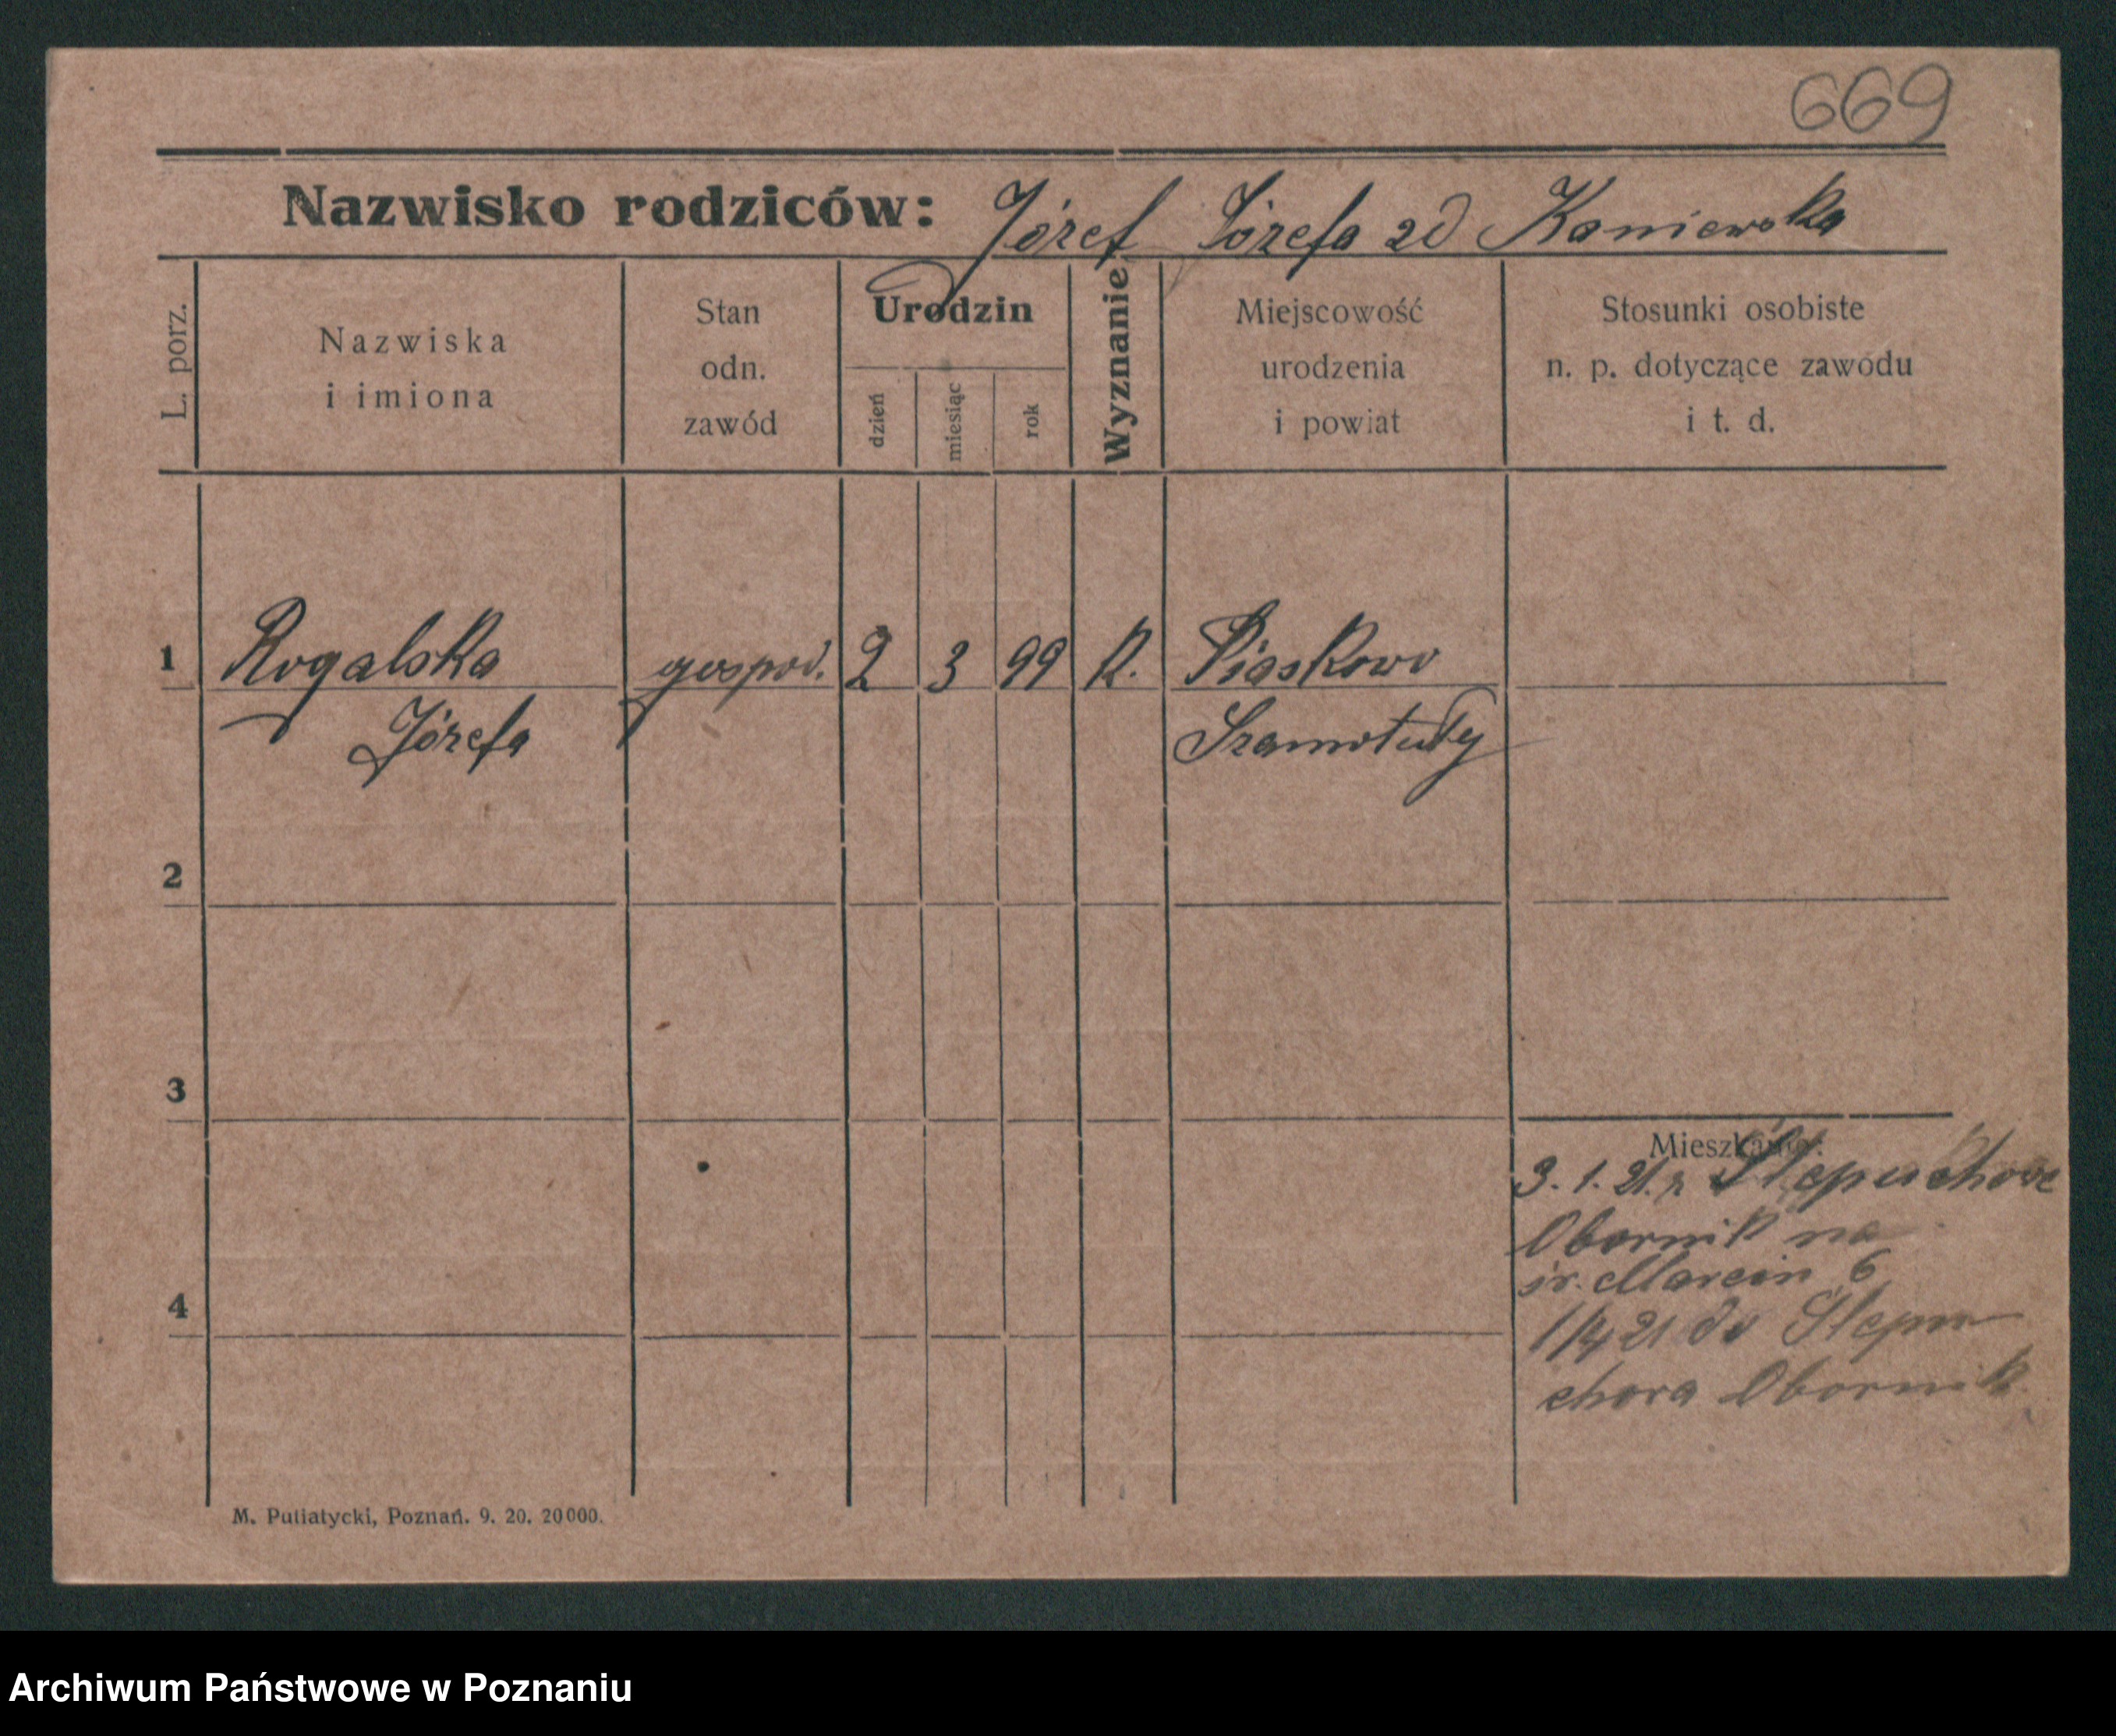 669
Nazwisko rodziców: Józef Józefa zd Kaniewska
L. porz.
Nazwiska
i imiona
Stan
odn.
zawód
Urodzin
dzień
miesiąc
rok
Wyznanie
Miejscowość
urodzenia
i powiat
Stosunki osobiste
n. p. dotyczące zawodu
i t. d.
1 Rogalska gospod. 2 3 99 R. Piaskowo
Józefa Szamotuły
2
3
Mieszkanie:
3. 1. 21. z
Obornik na
św. Marcin 6
4
1/4 21 do
Obornik
M. Putiatycki, Poznań. 9. 20. 20000.
Archiwum Państwowe w Poznaniu